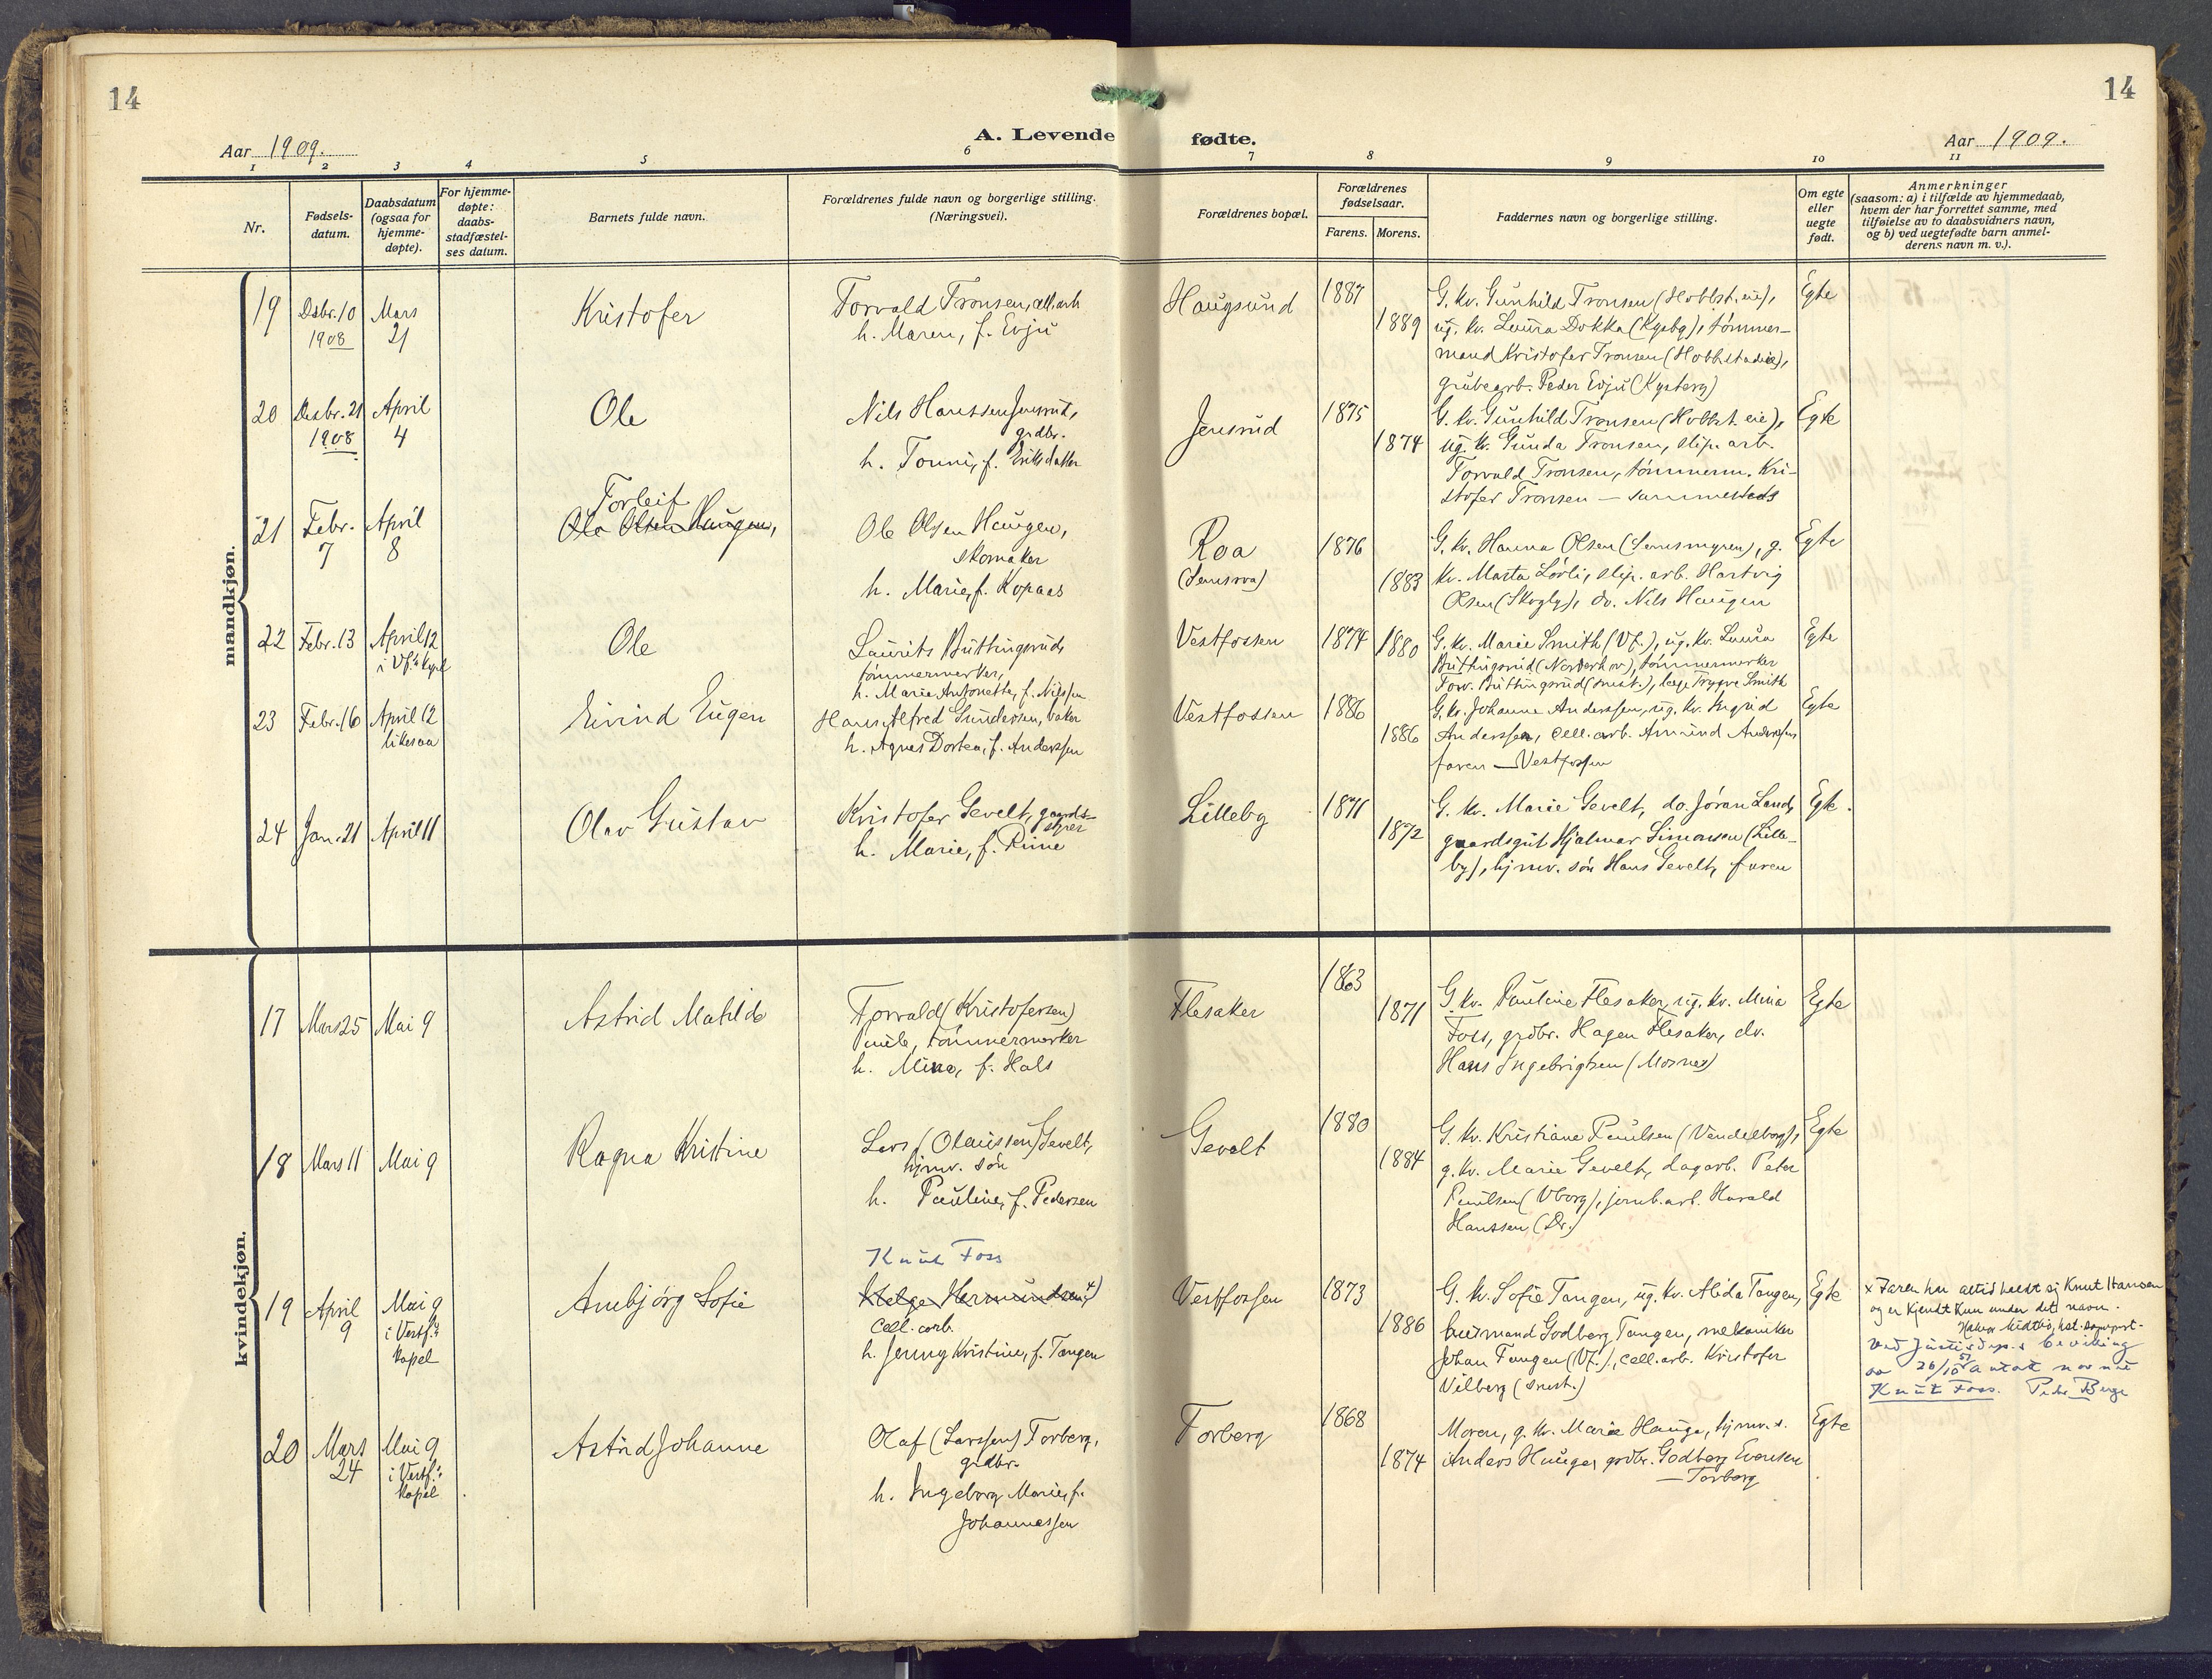 14
14
Aar 1909.
A. Levende fødte.
Aar 1909.
1 2 3 4 5 6 7 8 9 10 11
Nr.
Fødsels-
datum.
Daabsdatum
(ogsaa for
hjemme-
døpte).
For hjemme-
døpte:
daabs-
stadfæstel-
ses datum.
Barnets fulde navn.
Forældrenes fulde navn og borgerlige stilling.
(Næringsvei).
Forældrenes bopæl.
Forældrenes
fødselsaar.
Farens. Morens.
Faddernes navn og borgerlige stilling.
Om egte
eller
uegte
født.
Anmerkninger
(saasom: a) i tilfælde av hjemmedaab,
hvem der har forrettet samme, med
tilføielse av to daabsvidners navn,
og b) ved uegtefødte barn anmel-
derens navn m. v.).
mandkjøn.
19
Dsbr. 10
1908
Mars
21
Kristofer
Torvald Tronsen, cell. arb
h. Maren, f. Evju
Haugsund
1887
1889
G. kv. Gunhild Tronsen (Hobbst. eie),
ug. kv. Laura Dokka (Kysbg), tømmer-
mand Kristofer Tronsen (Hobbstadeie),
grubearb. Peder Evju (Kysberg)
Egte
20
Desbr. 21
1908
April
4
Ole
Nils Hanssen Jensrud,
grdbr.
h. Tonni, f. Eriksdatter
Jensrud
1875
1874
G. kv. Gunhild Tronsen (Hobbst. eie),
ug. kv. Gunda Tronsen, slip. arb.
Torvald Tronsen, tømmerm. Kri-
stofer Tronsen — sammesteds
Egte
21
Febr.
7
April
8
Torleif
Ole Olsen Haugen,
Ole Olsen Haugen,
skomaker
h. Marie, f. Kopaas
Roa
(Semsroa)
1876
1883
G. kv. Hanna Olsen (Semsmyren), g.
kv. Marta Lørli, slip. arb. Hartvig
Olsen (Skogly), do. Nils Haugen
Egte
22
Febr. 13
April 12
i Vf.s kapel
Ole
Laurits Buttingsrud,
tømmermerker,
h. Marie Antonette, f. Nilssen
Vestfossen
1874
1880
G. kv. Marie Smith (Vf.), ug. kv. Laura
Buttingsrud (Norderhov), tømmermerker
Torv. Buttingsrud (smst.), Trygve Smith
Egte
23
Febr. 16
April 12
likesaa
Eivind Eugen
Hans Alfred Gundersen, baker
h. Agnes Dortea, f. Anderssen
Vestfossen
1886
1886
G. kv. Johanne Anderssen, ug. kv. Ingrid
Anderssen, cell. arb. Amund Anderssen
faren — Vestfossen
Egte
24
Jan. 21
April 11
Olav Gustav
Kristofer Gevelt, gaards-
styrer
h. Marie, f. Rime
Lilleby
1871
1872
G. kv. Marie Gevelt, do. Jøran Lande
gaardsgut Hjalmar Simonsen (Lille-
by), hjmv. søn Hans Gevelt, faren
Egte.
kvindekjøn.
17
Mars 25
Mai 9
Astrid Matilde
Torvald (Kristofersen)
tømmermerker
h. Mina, f. Hals
Flesaker
1863
1871
G. kv. Pauline Flesaker, ug. kv. Mina
Foss, grdbr. Hagen Flesaker, do.
Hans Ingebrigtsen (Mosnes)
Egte
18
Mars 11
Mai 9
Ragna Kristine
Lars (Olaussen) Gevelt,
hjmv. søn
h. Pauline, f. Pedersen
Gevelt
1880
1884
G. kv. Kristiane Paulsen (Vendelborg),
g. kv. Marie Gevelt, dagarb. Peter
Paulsen (Vborg), jernb. arb. Harald
Hanssen (Dr.)
Egte
19
April
9
Mai 9
i Vestf.s
kapel
Annbjørg Sofie
Knut Foss
Helge Hermundsen x)
Cell. arb.
h. Jenny Kristine, f. Tangen
Vestfossen
1873
1886
G. kv. Sofie Tangen, ug. kv. Alida Tangen,
Godberg Tangen, mekaniker
Johan Tangen (Vf.), cell. arb. Kristofer
Vilberg (smst.)
Egte
x Faren har altid heett sig Knut Hansen
og er kjendt kun under det navn.
Ved Justisdep.s bevilling
av 26/10 51 antatt navnet
Knut Foss. Peder Berge
20
Mars
24
Mai 9
i Vestf.s
kapel
Astrid Johanne
Olaf (Larssen) Torberg,
grdbr.
h. Ingeborg Marie, f.
Johannessen
Torberg
1868
1874
Moren, g. kv. Marie Hauga, hjmv. s.
Anders Hauga, grdbr. Godberg Evensen
— Torberg
Egte